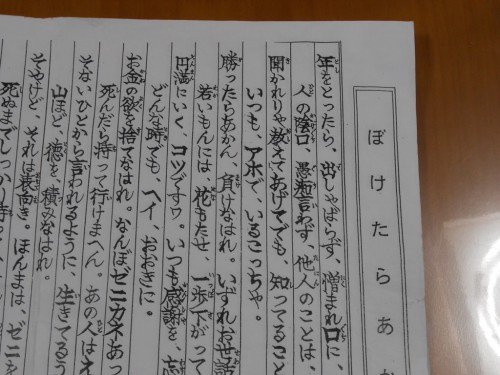 ぼけたらあか
年をとったら、出しゃばらず、憎まれ口に、
人の陰口、愚痴言わず、他人のことは、
聞かれりゃ教えてあげてでも、知ってること
いつも、アホで、いるこっちゃ。
勝ったらあかん、負けなはれ。いずれお世話
若いもんには、花もたせ、一歩下がって
円満にいく、コツですワ。いつも感謝を、忘
どんな時でも、ヘイ、おおきに。
お金の欲を、捨てなはれ。なんぼゼニカネあっ
死んだら持って行けまへん。あの人はえ
そないひとから言われるように、生きてるう
山ほど、徳を、積みなはれ。
そやけど、それは表向き。ほんまは、ゼニを
死ぬまでしっかり持っ